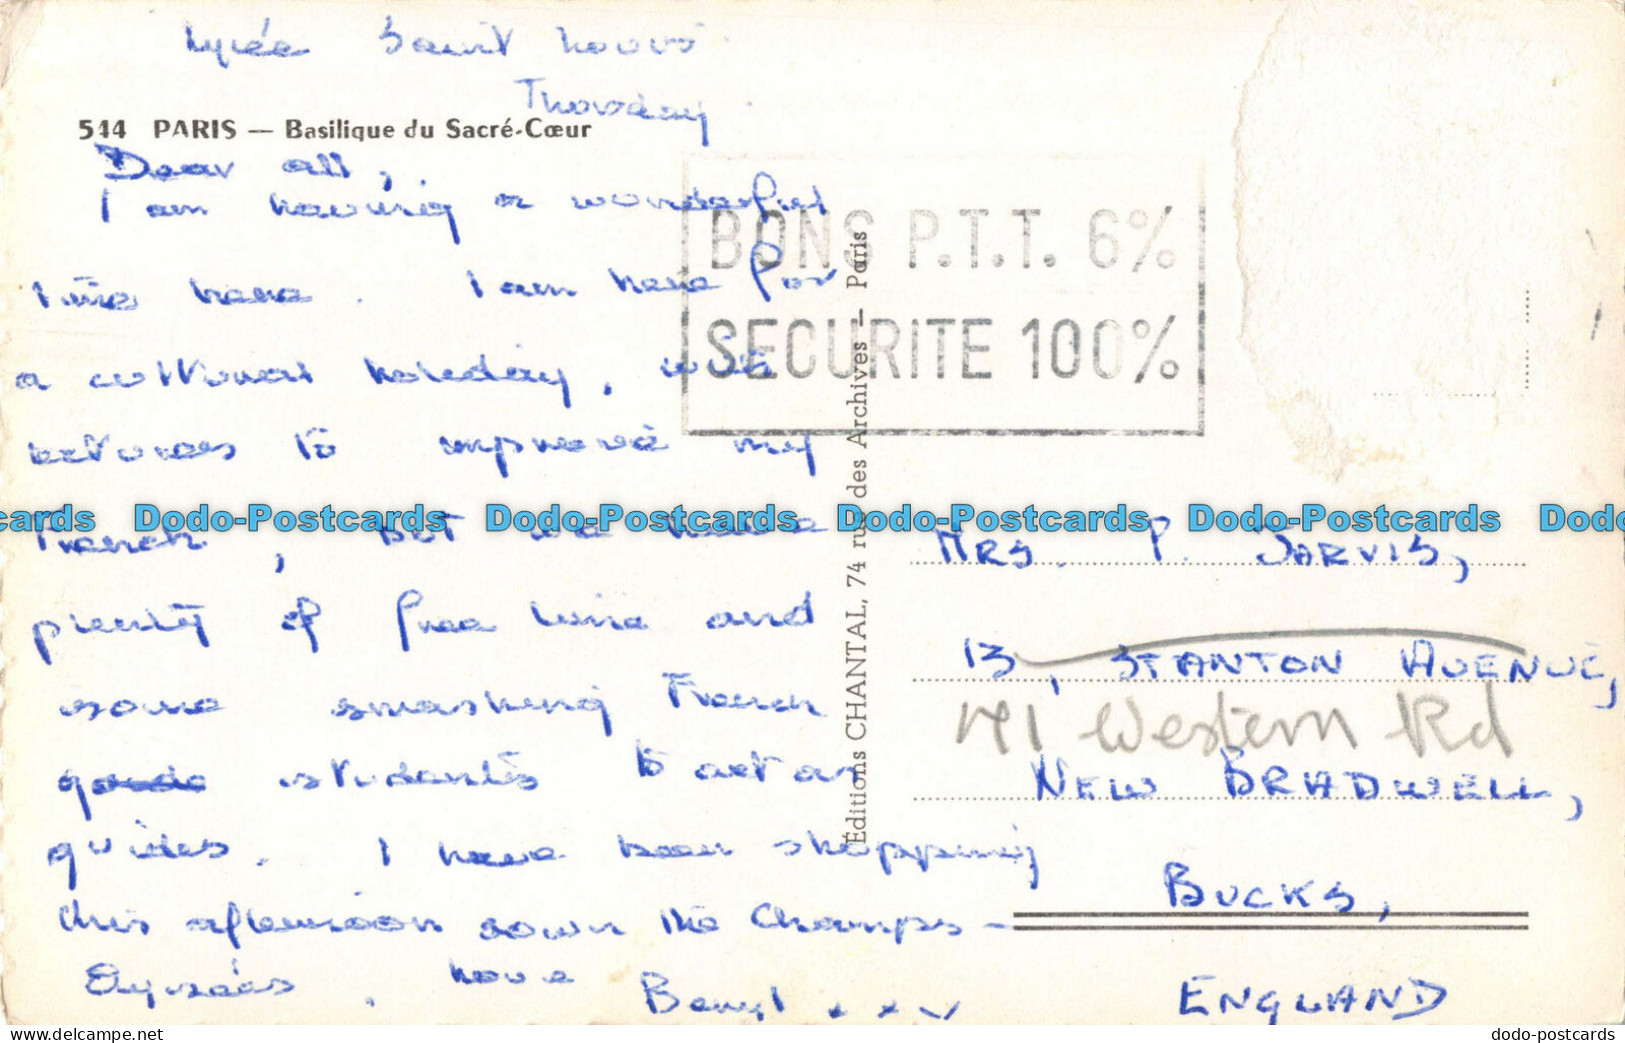 Lycée Saint Louis
Thursday
544 PARIS — Basilique du Sacré-Cœur
Dear all,
I am having a wonderful
time here. I am here for
a cultural holiday, with
lectures to improve my
French, but we have
plenty of free time and
some smashing French
students to act as
guides. I have been shopping
this afternoon down the Champs-
Elysées. Love
Beryl x x x
BONS P.T.T. 6%
SECURITE 100%
Éditions CHANTAL, 74 rue des Archives — Paris
MRS. P. JARVIS,
13, STANTON AVENUE,
171 Western Rd
NEW BRADWELL,
BUCKS,
ENGLAND
cards Dodo-Postcards Dodo-Postcards Dodo-Postcards Dodo-Postcards Dodo
https://www.delcampe.net
dodo-postcards